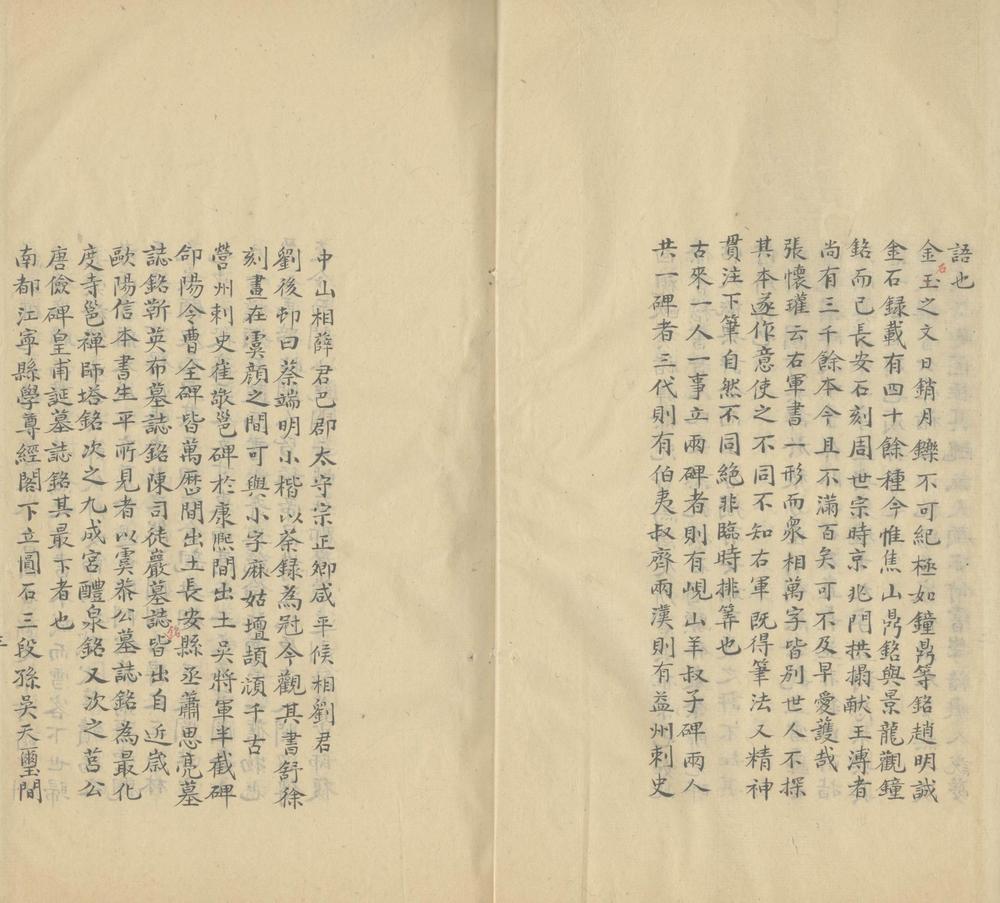 語也
金玉之文日銷月鑠不可紀極如鐘鼎等銘趙明誠
石
金石録載有四十餘種今惟焦山鼎銘與景龍觀鐘
銘而已長安石刻周世宗時京兆門拱搨献王溥者
尚有三千餘本今且不滿百矣可不及早愛護哉
張懷瓘云右軍書一形而衆相萬字皆別世人不探
其本遂作意使之不同不知右軍既得筆法又精神
貫注下筆自然不同絶非臨時排筭也
古來一人一事立兩碑者則有峴山羊叔子碑兩人
共一碑者三代則有伯夷叔齊兩漢則有益州刺史
中山相薛君巴郡太守宗正卿咸平侯相劉君
劉後邨曰蔡端明小楷以荼録為冠今觀其書舒徐
刻畫在虞顔之間可與小字麻姑壇頡頏千古
營州刺史崔敬邕碑於康熙間出土吳將軍半截碑
郃陽令曹全碑皆萬厯間出土長安縣丞蕭思亮墓
誌銘靳英布墓誌銘陳司徒巖墓誌皆出自近嵗
銘
歐陽信本書生平所見者以虞恭公墓誌銘為最化
度寺邕禅師塔銘次之九成宮醴泉銘又次之莒公
唐儉碑皇甫誕墓誌銘其最下者也
南都江寧縣學尊經閣下立圓石三段孫吳天璽間